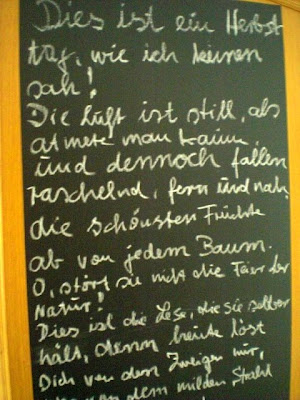 Dies ist ein Herbst
tag, wie ich keinen
sah!
Die Luft ist still, als
atmete man kaum,
und dennoch fallen
raschelnd, fern und nah,
die schönsten Früchte
ab von jedem Baum.
O, stört sie nicht die Feier der
Natur!
Dies ist die Lese, die sie selber
hält, denn heute löst
sich von den Zweigen nur,
was von dem milden Strahl